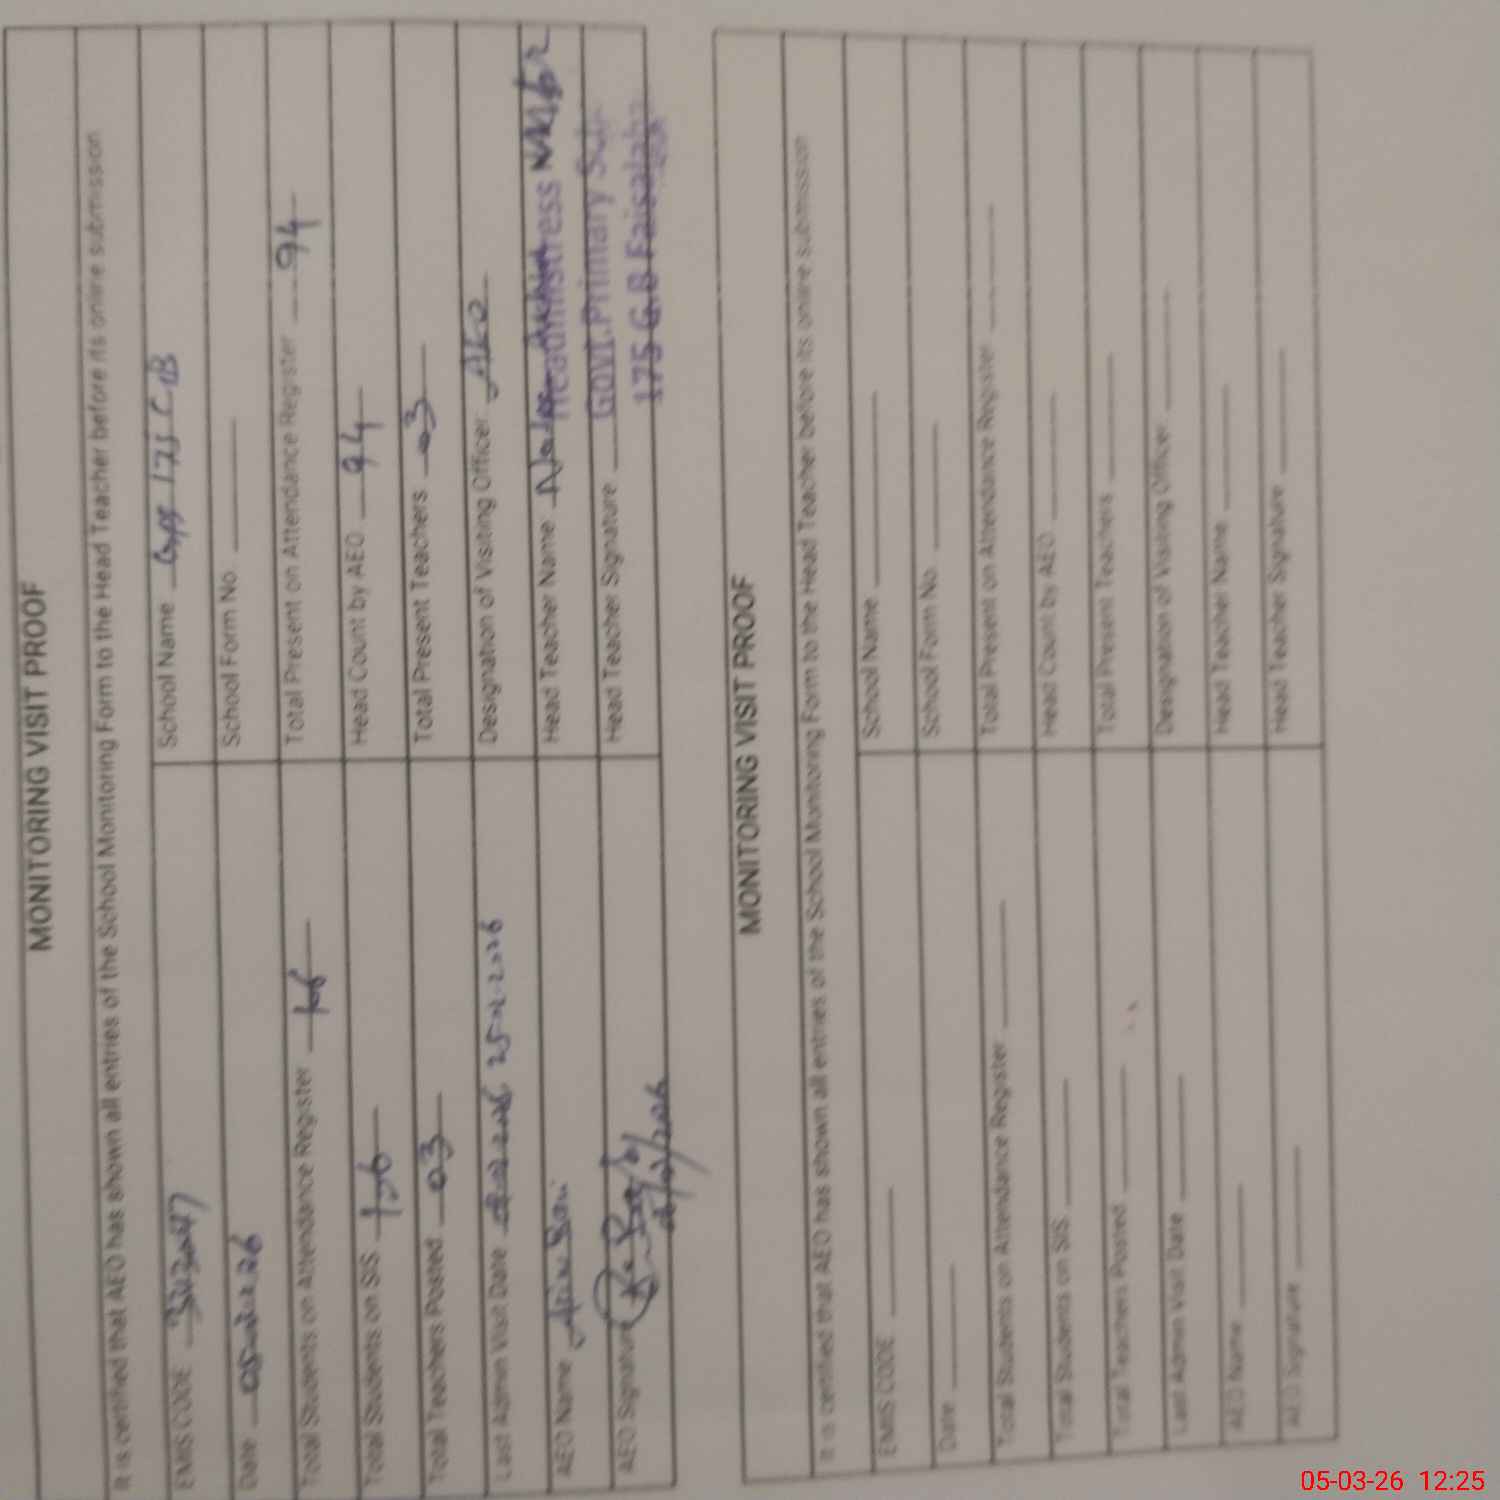 MONITORING VISIT PROOF
It is certified that AEO has shown all entries of the School Monitoring Form to the Head Teacher before its online submission
EMIS CODE
School Name 175 GB
Date
School Form No
Total Students on Attendance Register
Total Present on Attendance Register 94
Total Students on SIS
Head Count by AEO 94
Total Teachers Posted 03
Total Present Teachers 03
Last Admin Visit Date
Designation of Visiting Officer AEO
AEO Name
Head Teacher Name
Headmistress
AEO Signature
Head Teacher Signature
Govt. Primary
175 G.B Faisalabad
MONITORING VISIT PROOF
It is certified that AEO has shown all entries of the School Monitoring Form to the Head Teacher before its online submission
EMIS CODE
School Name
Date
School Form No
Total Students on Attendance Register
Total Present on Attendance Register
Total Students on SIS
Head Count by AEO
Total Teachers Posted
Total Present Teachers
Last Admin Visit Date
Designation of Visiting Officer
AEO Name
Head Teacher Name
AEO Signature
Head Teacher Signature
05-03-26 12:25